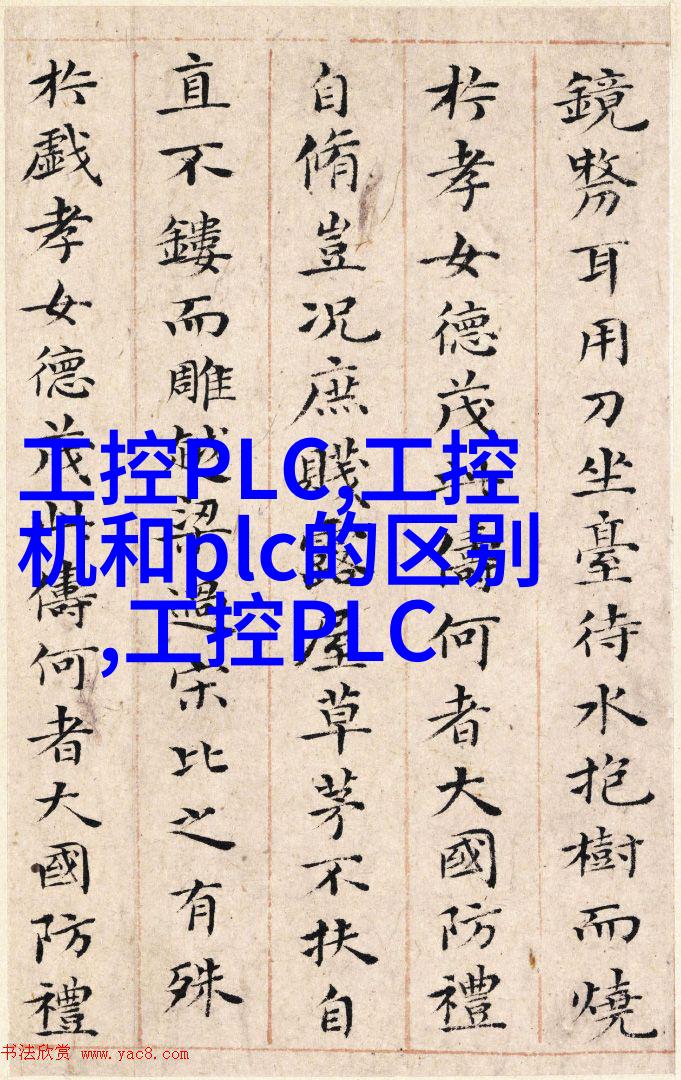 鏡剺耳用刀坐臺待水抱樹而燒
於孝女德茂此儔何者大國防禮
自脩豈況庶賤露屋草茅不扶自
直不鏤而雕越梁過宋比之有殊
於戲孝女德茂此儔何者大國防禮
工控PLC,工控
机和plc的区别
,工控PLC
书法欣赏 www.yac8.com